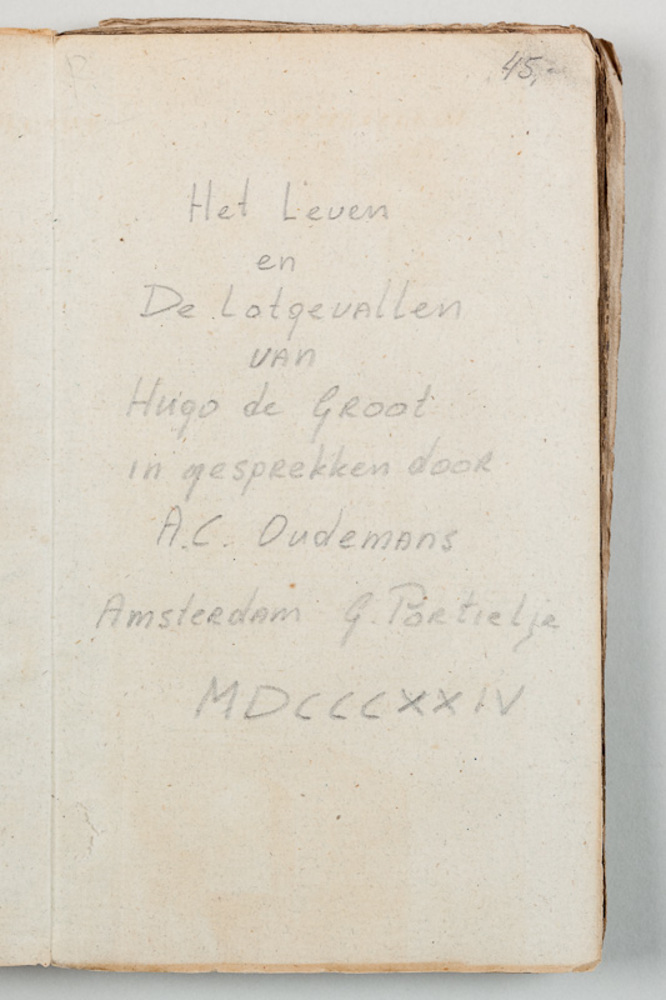 45,-
Het Leven
en
De Lotgevallen
van
Hugo de Groot
in gesprekken door
A.C. Oudemans
Amsterdam G. Portielje
MDCCCXXIV